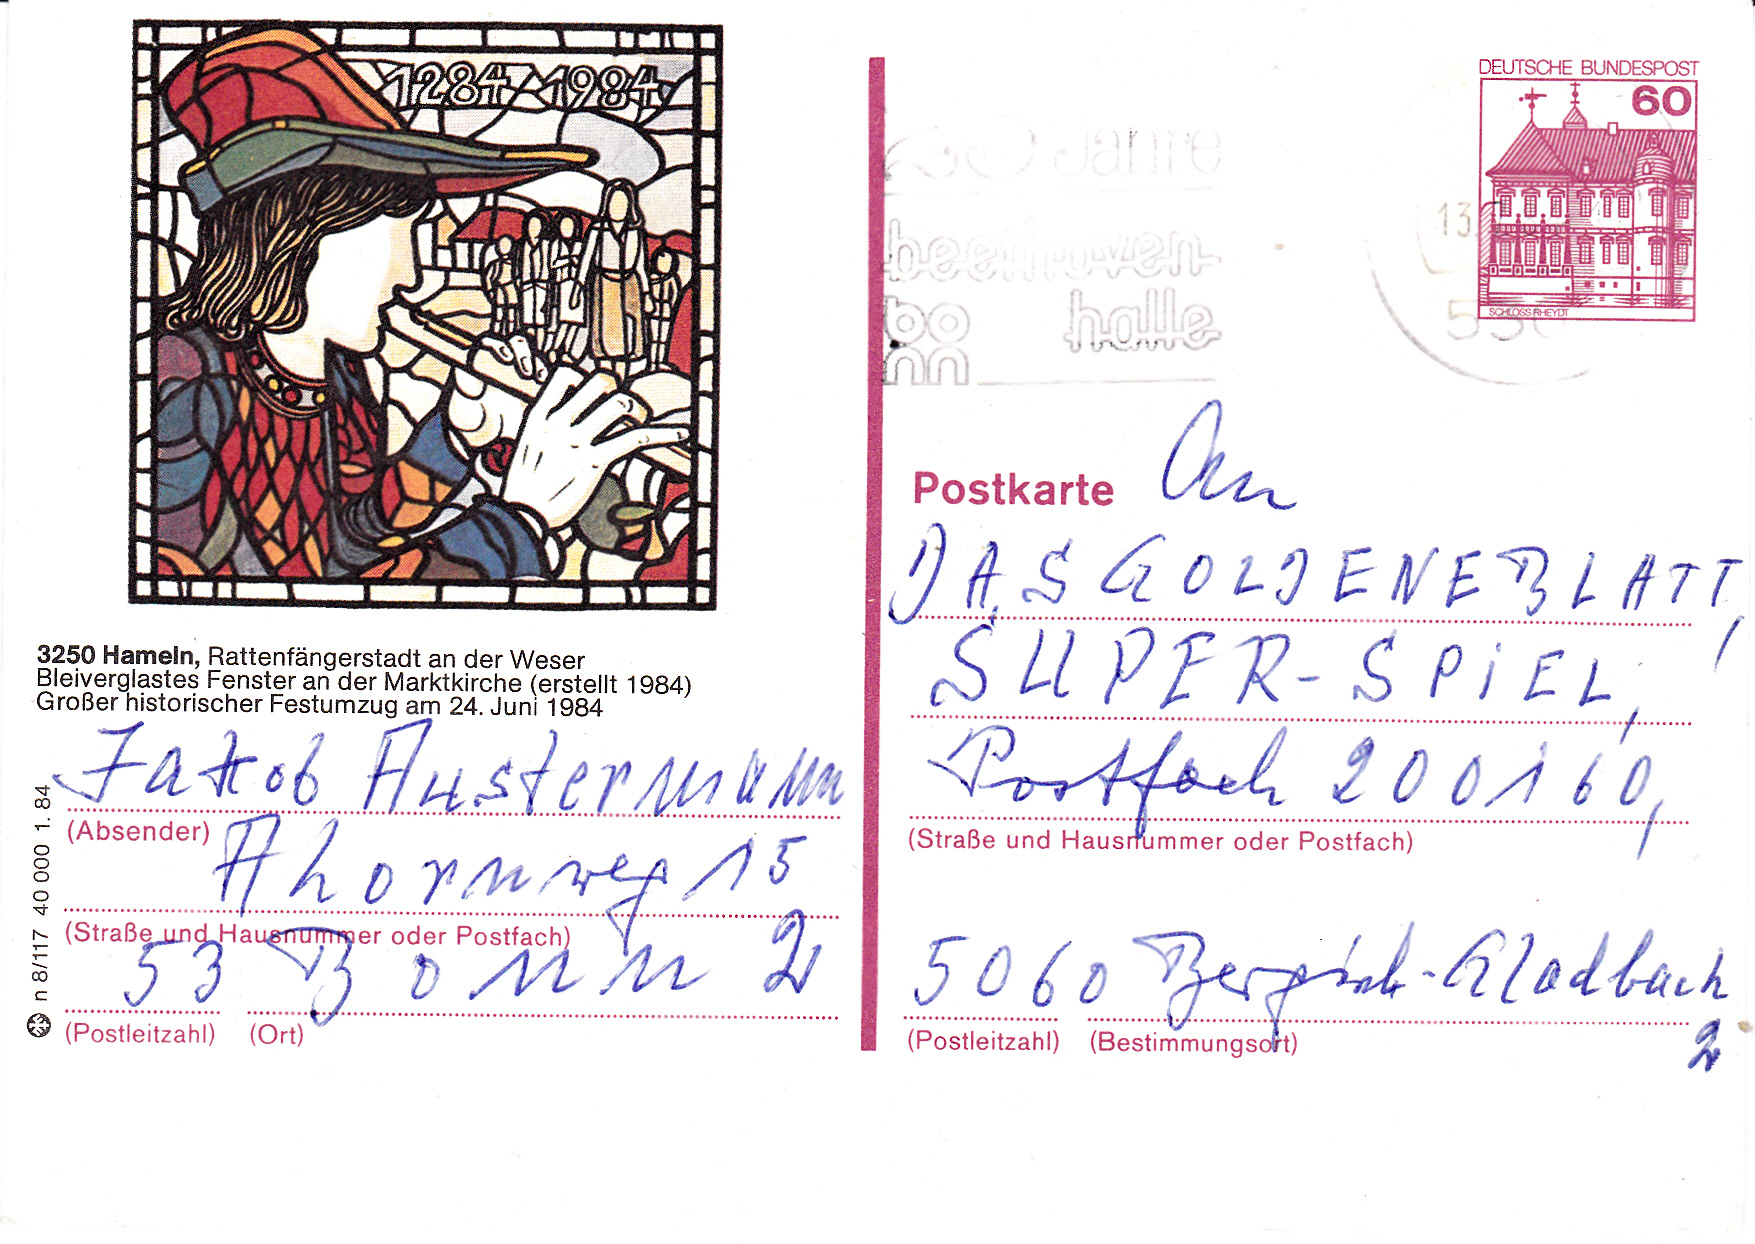 1284 1984
3250 Hameln, Rattenfängerstadt an der Weser
Bleiverglastes Fenster an der Marktkirche (erstellt 1984)
Großer historischer Festumzug am 24. Juni 1984
Jakob Austermann
(Absender)
Ahornweg 15
(Straße und Hausnummer oder Postfach)
53 Bonn 2
(Postleitzahl) (Ort)
n 8/117 40 000 1. 84
DEUTSCHE BUNDESPOST
60
SCHLOSS RHEYDT
Jahre
beethoven-
bo halle
nn
13.
Postkarte An
DAS GOLDENE BLATT,
SUPER-SPiEL,
Postfach 200160,
(Straße und Hausnummer oder Postfach)
5060 Bergisch-Gladbach
2
(Postleitzahl) (Bestimmungsort)